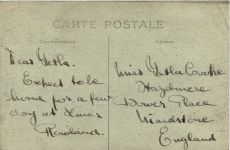 CARTE POSTALE
Correspondance
Adresse
Dear Yetla.
Expect to be
home for a few
days at Xmas
Rowland.
Miss Yetla Cooke
Hazelmere
Tower Place
Maidstone
England